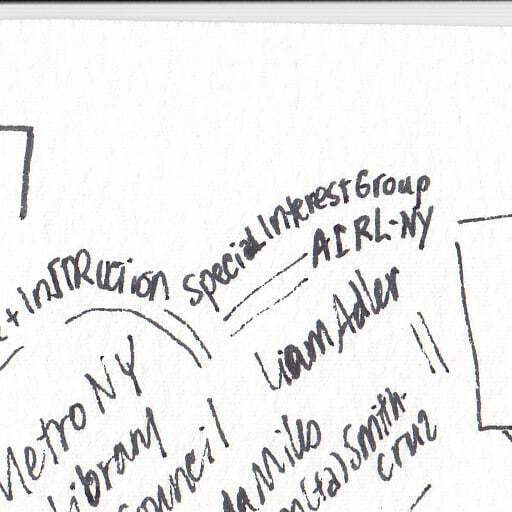 + InSTRUction
Special Interest Group
AIRL-NY
Liam Adler
Metro NY
Library
Council
Mills
Smith-
Cruz